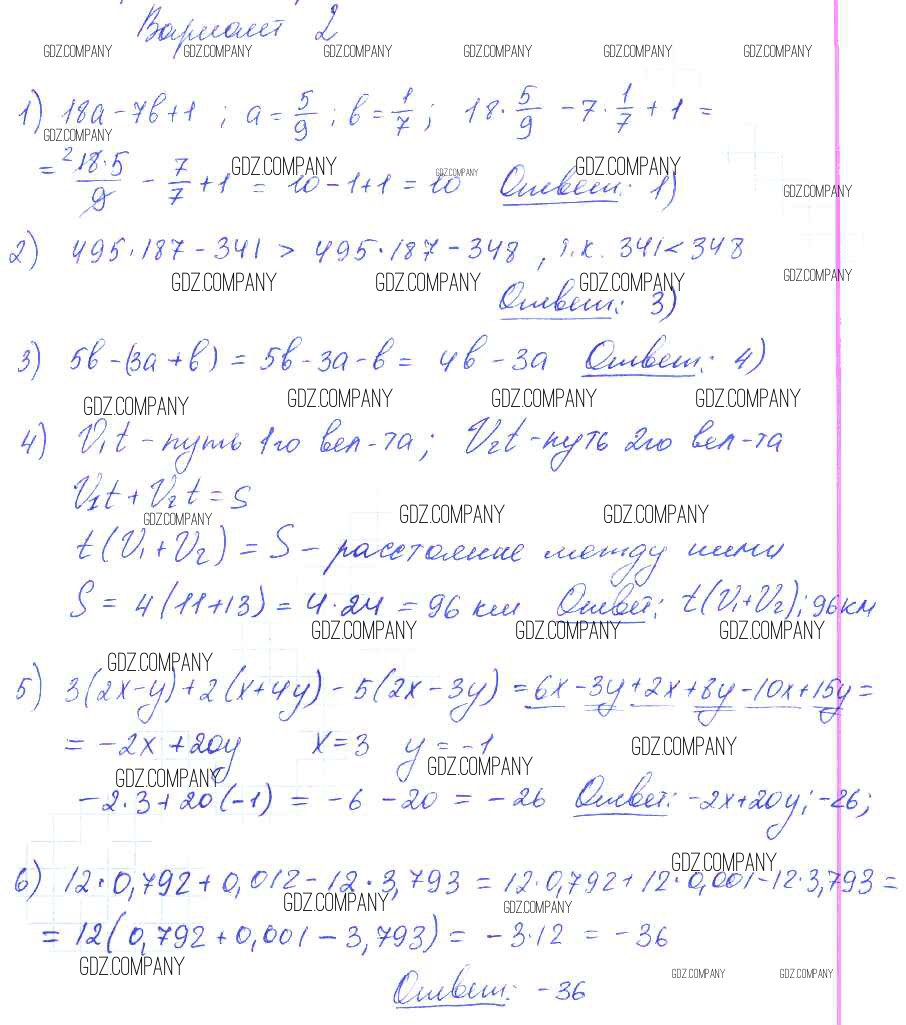 Вариант 2
GDZ.COMPANY GDZ.COMPANY GDZ.COMPANY GDZ.COMPANY GDZ.COMPANY GDZ.COMPANY
1) 18a - 7b + 1 ; a = 5/9 ; b = 1/7 ; 18 · 5/9 - 7 · 1/7 + 1 =
GDZ.COMPANY
= 2 18·5/9 - 7/7 + 1 = 10 - 1 + 1 = 10 Ответ: 1)
GDZ.COMPANY GDZ.COMPANY GDZ.COMPANY GDZ.COMPANY
2) 495·187 - 341 > 495·187 - 348, т.к. 341 < 348
GDZ.COMPANY GDZ.COMPANY GDZ.COMPANY GDZ.COMPANY
Ответ: 3)
3) 5b - (3a + b) = 5b - 3a - b = 4b - 3a Ответ: 4)
GDZ.COMPANY GDZ.COMPANY GDZ.COMPANY GDZ.COMPANY
4) V₁t - путь 1го вел-та; V₂t - путь 2го вел-та
V₁t + V₂t = S
GDZ.COMPANY GDZ.COMPANY GDZ.COMPANY
t(V₁ + V₂) = S - расстояние между ними
S = 4(11+13) = 4·24 = 96 км Ответ: t(V₁+V₂); 96км
GDZ.COMPANY GDZ.COMPANY GDZ.COMPANY
GDZ.COMPANY
5) 3(2x-y) + 2(x+4y) - 5(2x-3y) = 6x - 3y + 2x + 8y - 10x + 15y =
= -2x + 20y x = 3 y = -1
GDZ.COMPANY GDZ.COMPANY GDZ.COMPANY
-2·3 + 20(-1) = -6 - 20 = -26 Ответ: -2x+20y; -26;
GDZ.COMPANY
6) 12·0,792 + 0,012 - 12·3,793 = 12·0,792 + 12·0,001 - 12·3,793 =
GDZ.COMPANY GDZ.COMPANY
= 12(0,792 + 0,001 - 3,793) = -3·12 = -36
GDZ.COMPANY GDZ.COMPANY GDZ.COMPANY
Ответ: -36